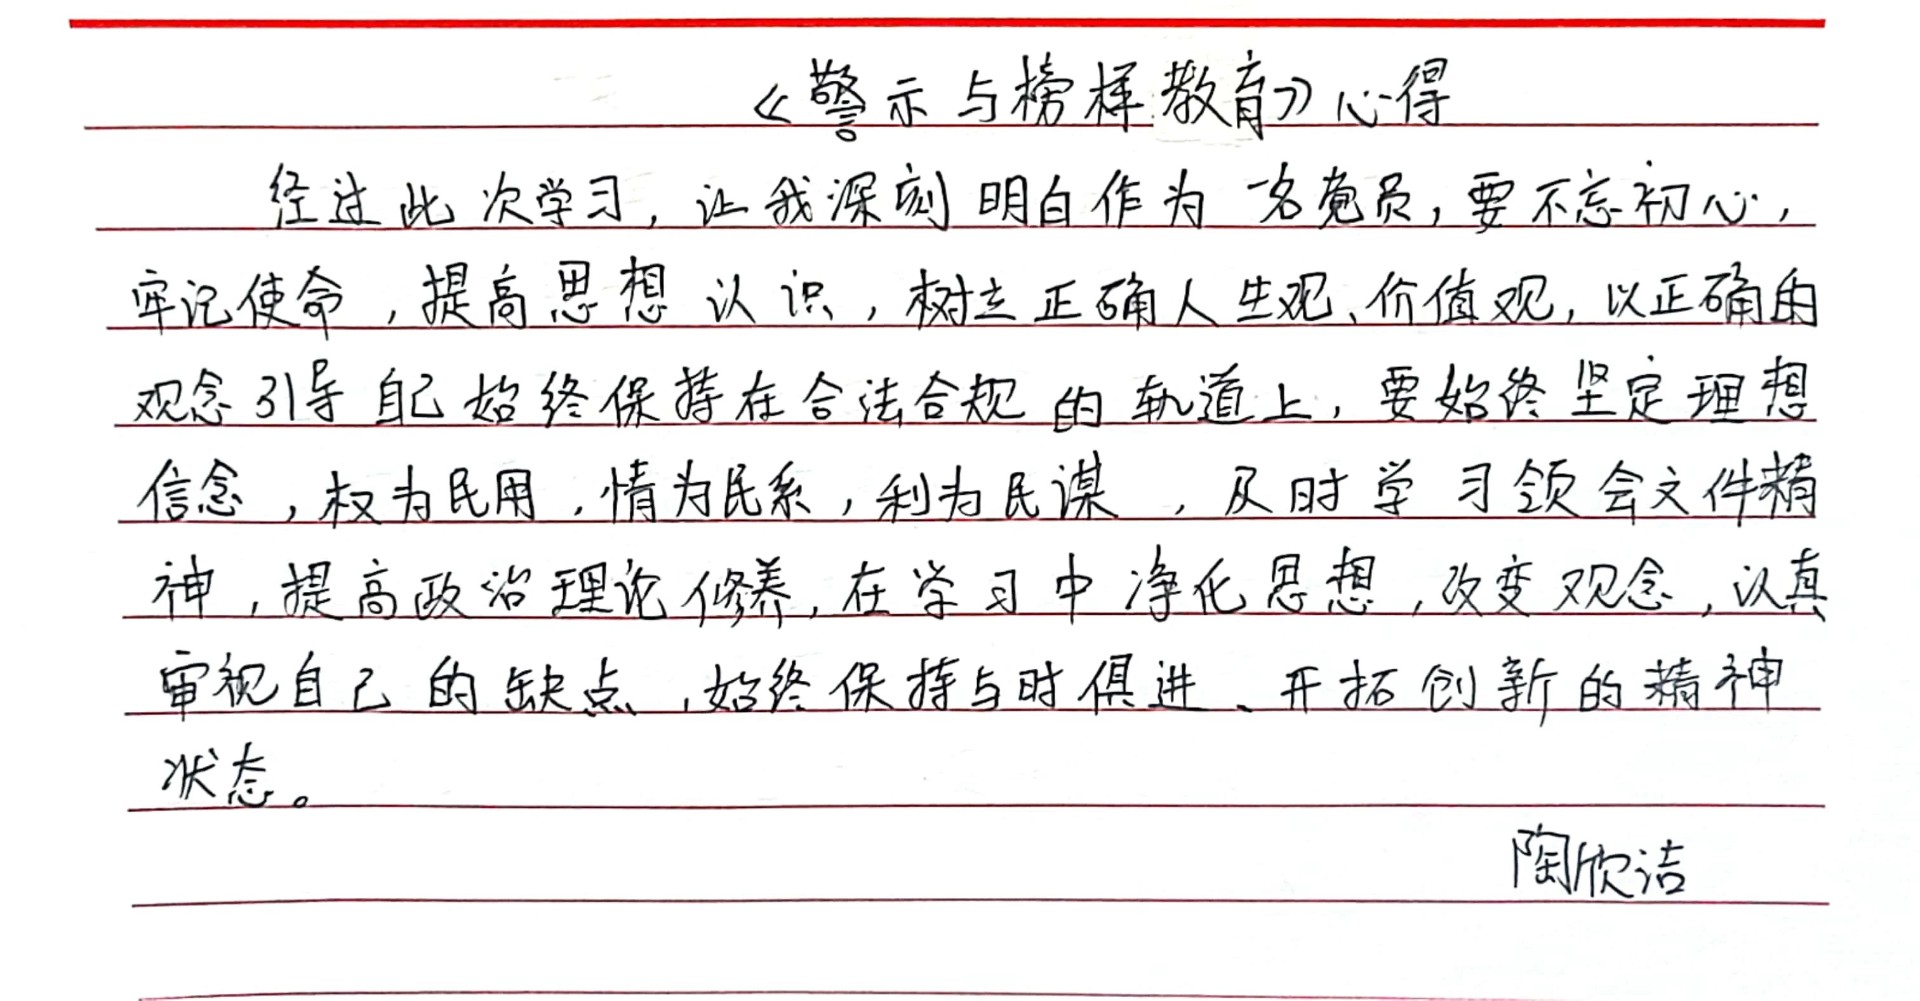 《警示与榜样教育》心得
经过此次学习，让我深刻明白作为一名党员，要不忘初心，
牢记使命，提高思想认识，树立正确人生观、价值观，以正确的
观念引导自己始终保持在合法合规的轨道上，要始终坚定理想
信念，权为民用，情为民系，利为民谋，及时学习领会文件精
神，提高政治理论修养，在学习中净化思想，改变观念，认真
审视自己的缺点，始终保持与时俱进、开拓创新的精神
状态。
陶欣洁